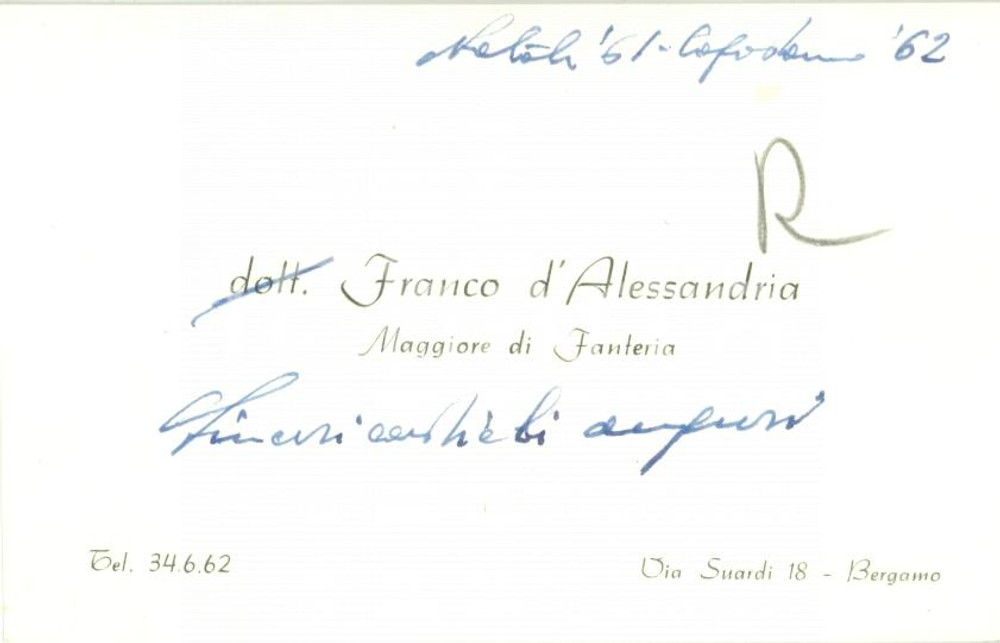 Natale '61 - Capodanno '62
R
dott. Franco d'Alessandria
Maggiore di Fanteria
Sinceri cordiali auguri
Tel. 34.6.62
Via Suardi 18 - Bergamo